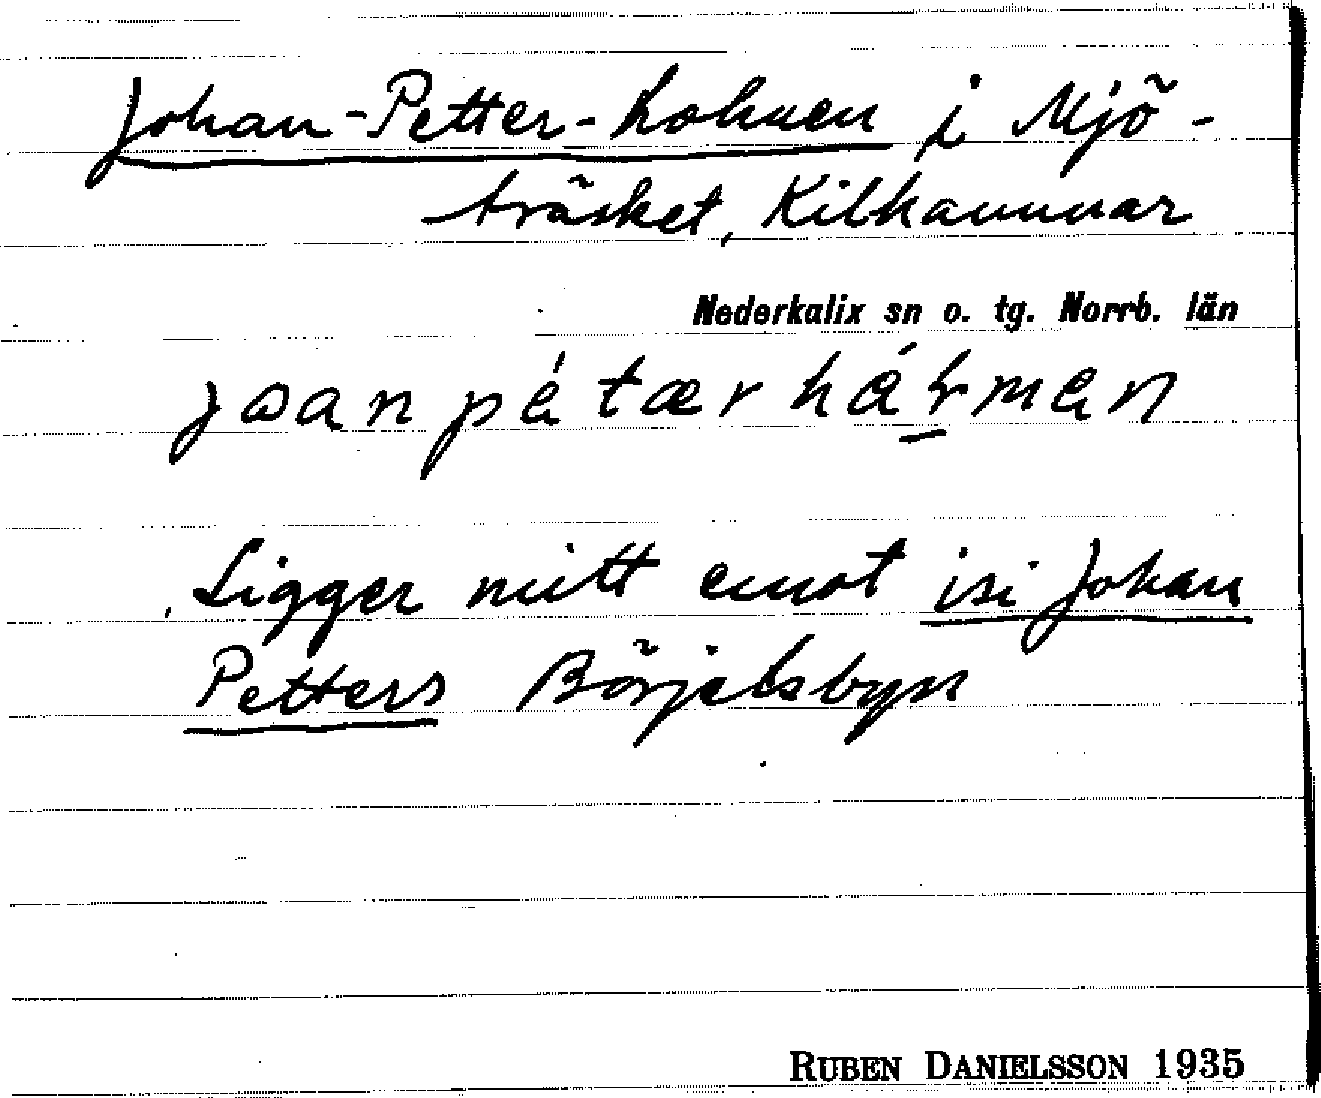 Johan-Petter-holmen i Mjö-
träsket, Kilhammar
Nederkalix sn o. tg. Norrb. län
Ligger mitt emot isi Johan
Petters Börjelsbyn
RUBEN DANIELSSON 1935